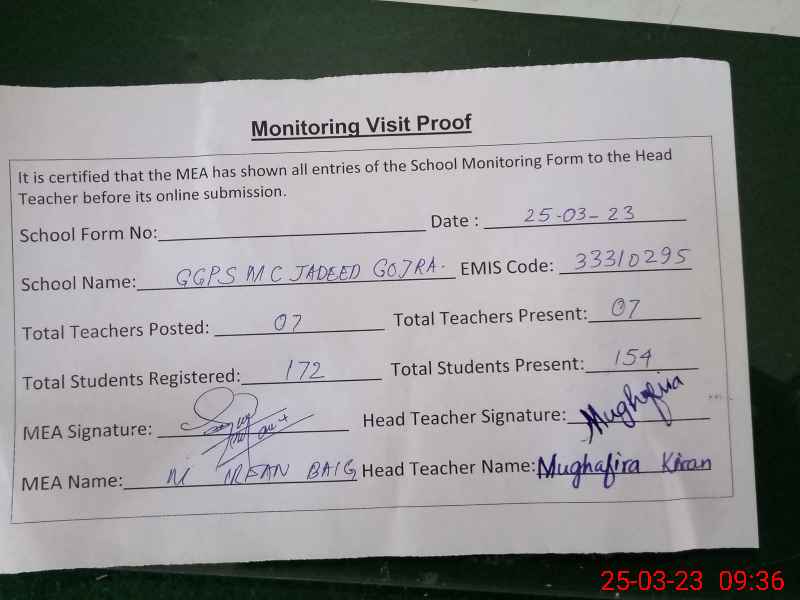 Monitoring Visit Proof
It is certified that the MEA has shown all entries of the School Monitoring Form to the Head
Teacher before its online submission.
School Form No: Date : 25-03-23
School Name: GGPS MC JADEED GOJRA. EMIS Code: 33310295
Total Teachers Posted: 07 Total Teachers Present: 07
Total Students Registered: 172 Total Students Present: 154
MEA Signature: Head Teacher Signature: Mughafira
MEA Name: M IRFAN BAIG Head Teacher Name: Mughafira Kiran
25-03-23 09:36